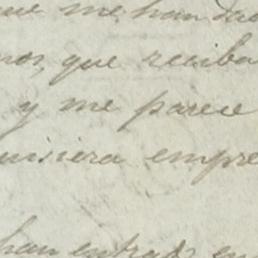 que me han dad
mos, que reciba
y me parece
uisiera empre
han entrado en